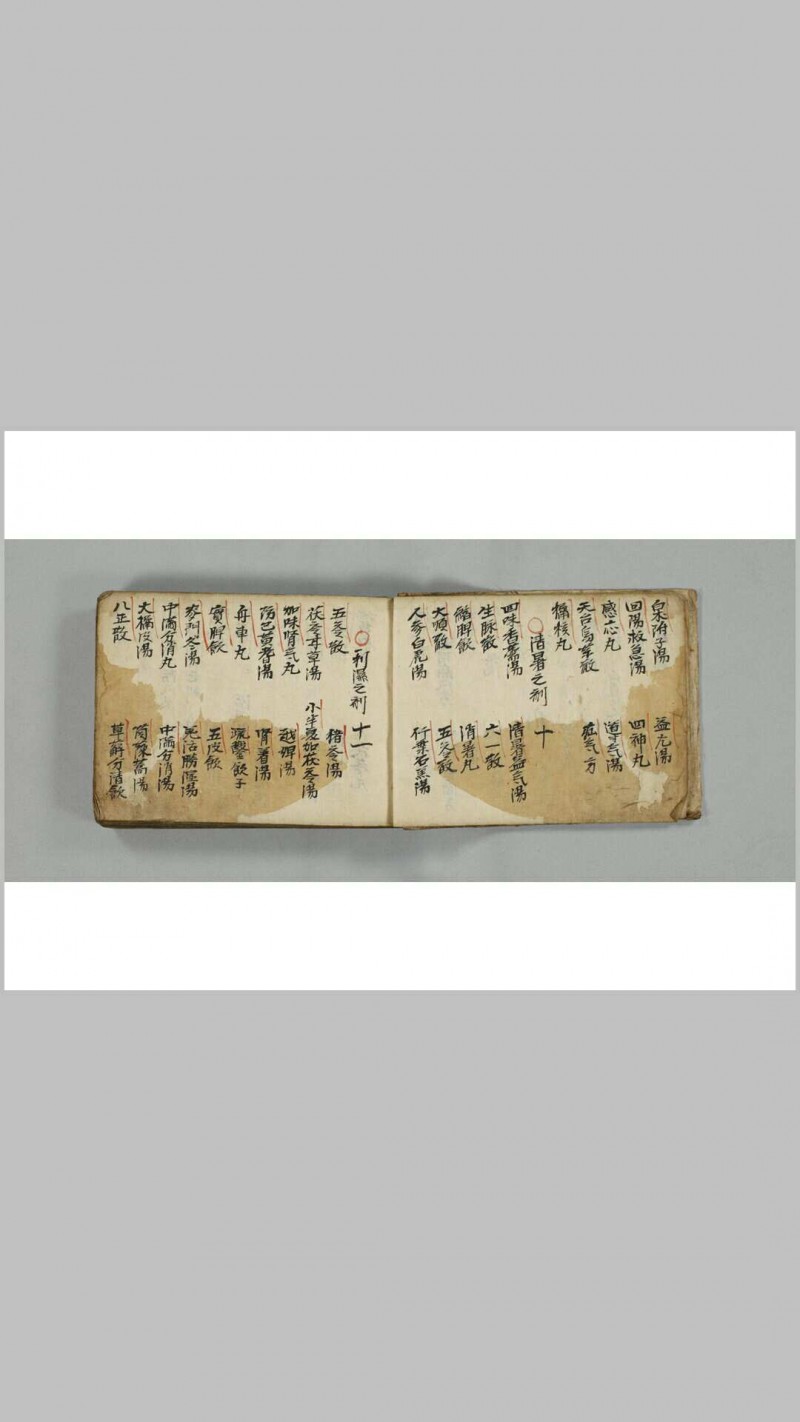 白朮附子湯 益元湯
回陽救急湯 四神丸
感应丸 導气湯
天台烏藥散 疝气方
橘核丸
○清暑之剂 十
四味香薷湯 清暑益气湯
生脉散 六一散
縮脾飲 消暑丸
大順散 五苓散
人参白虎湯 竹葉石羔湯
○利濕之剂 十一
五苓散 猪苓湯
茯苓甘草湯 小半夏加茯苓湯
加味肾气丸 越婢湯
防己黄耆湯 肾着湯
舟車丸 疏鑿飲子
實脾飲 五皮飲
麥門冬湯 羌活勝湿湯
中滿分消丸 中滿分消湯
大橘皮湯 茵陳蒿湯
八正散 萆薢分清飲